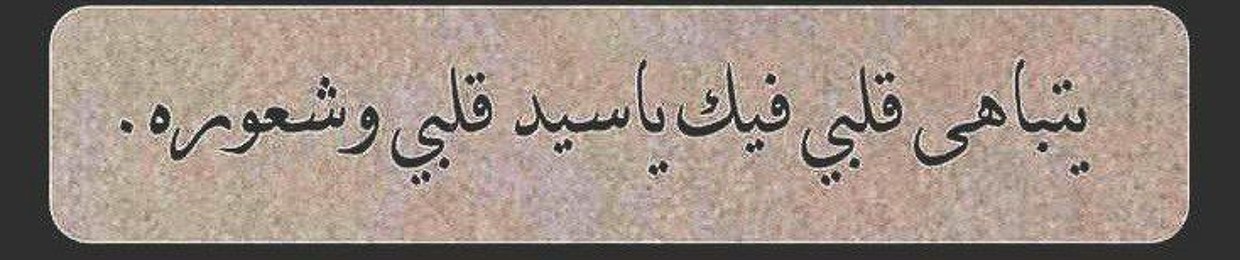 يتباهى قلبي فيك ياسيد قلبي وشعوره.